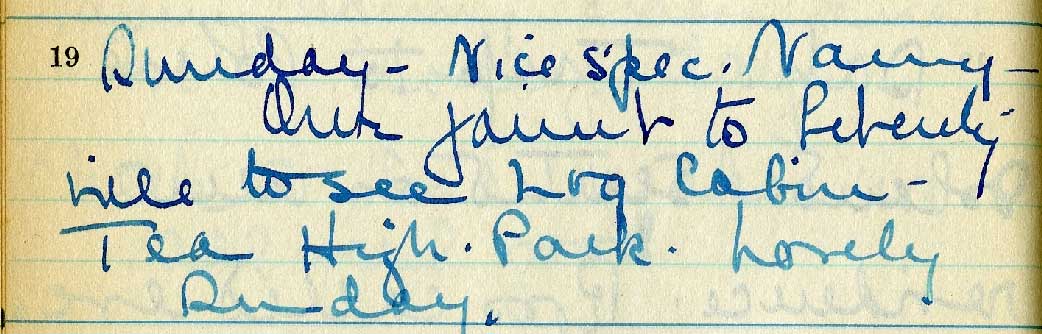 19 Sunday - Nice spec. Nancy -
Our jaunt to
ville to see Log Cabin -
Tea High. Park. Lovely
Sunday.